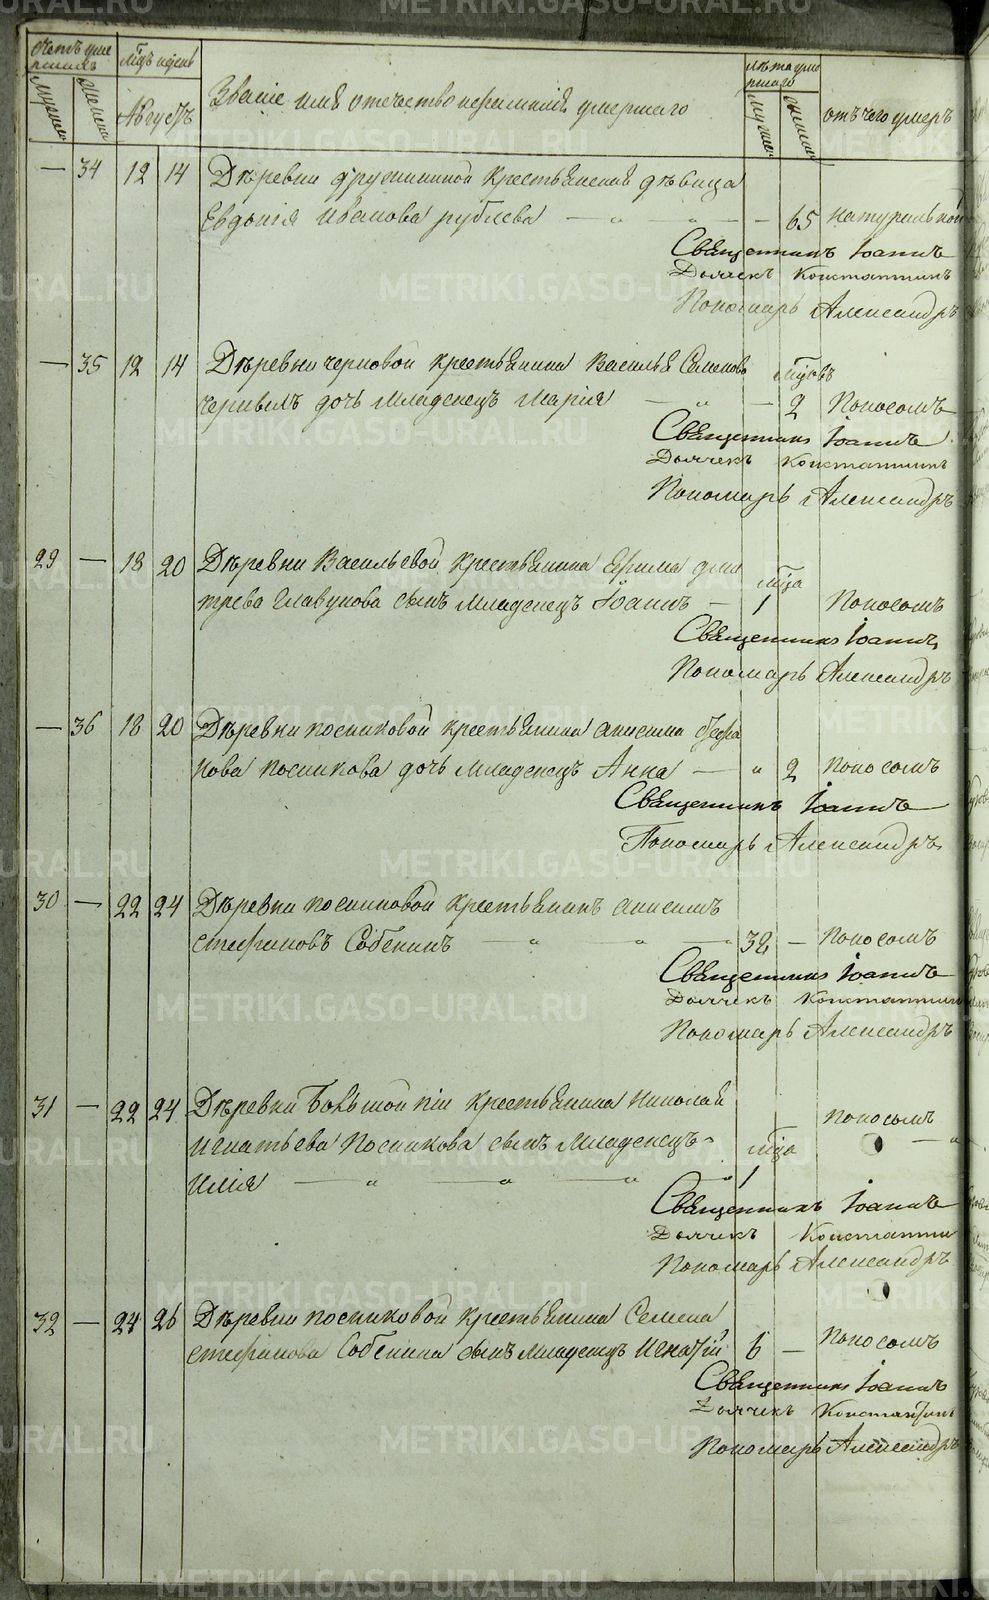 METRIKI.GASO-URAL.RU
Счетъ уме
ршихъ
Мцъ и день
лѣта уме
ршаго
Мужеска
Женска
Августъ
Званіе имя отечество и фамилія умершаго
Мужеска
Женска
отъ чего умеръ
— 34 12 14 Дѣревни дружининой крестьянская дѣвица
Евдокія Иванова рублева — „ — „ — — 65 натуральной
Священникъ Іоаннъ
Дьячекъ Константинъ
Пономарь Александръ
— 35 12 14 Дѣревни черновой крестьянина Василья Семенова
мцовъ
дочь Младенецъ Марія — „ — 2 Поносомъ
Священникъ Іоаннъ
Дьячекъ Константинъ
Пономарь Александръ
29 — 18 20 Дѣревни Васильевой крестьянина Ефима дми
мца
трева Главунова сынъ Младенецъ Іоаннъ — 1 Поносомъ
Священникъ Іоаннъ
Пономарь Александръ
— 36 18 20 Дѣревни посниковой крестьянина анисима
нова посникова дочь Младенецъ Анна — „ 2 Поносомъ
Священникъ Іоаннъ
Пономарь Александръ
30 — 22 24 Дѣревни посниковой крестьянинъ анисимъ
стефановъ Собенинъ — „ „ — „ 32 — Поносомъ
Священникъ Іоаннъ
Дьячекъ Константинъ
Пономарь Александръ
31 — 22 24 Дѣревни Большой крестьянина Николая
Поносомъ
игнатьева Посникова сынъ Младенецъ
мца
Илія — „ — „ — „ — „ 1
Священникъ Іоаннъ
Дьячекъ Константин
Пономарь Александръ
32 — 24 26 Дѣревни посниковой крестьянина Семена
Поносомъ
стефанова Собенина сынъ Младенецъ Игнатій 6 —
Священникъ Іоаннъ
Дьячекъ Константинъ
Пономарь Александръ